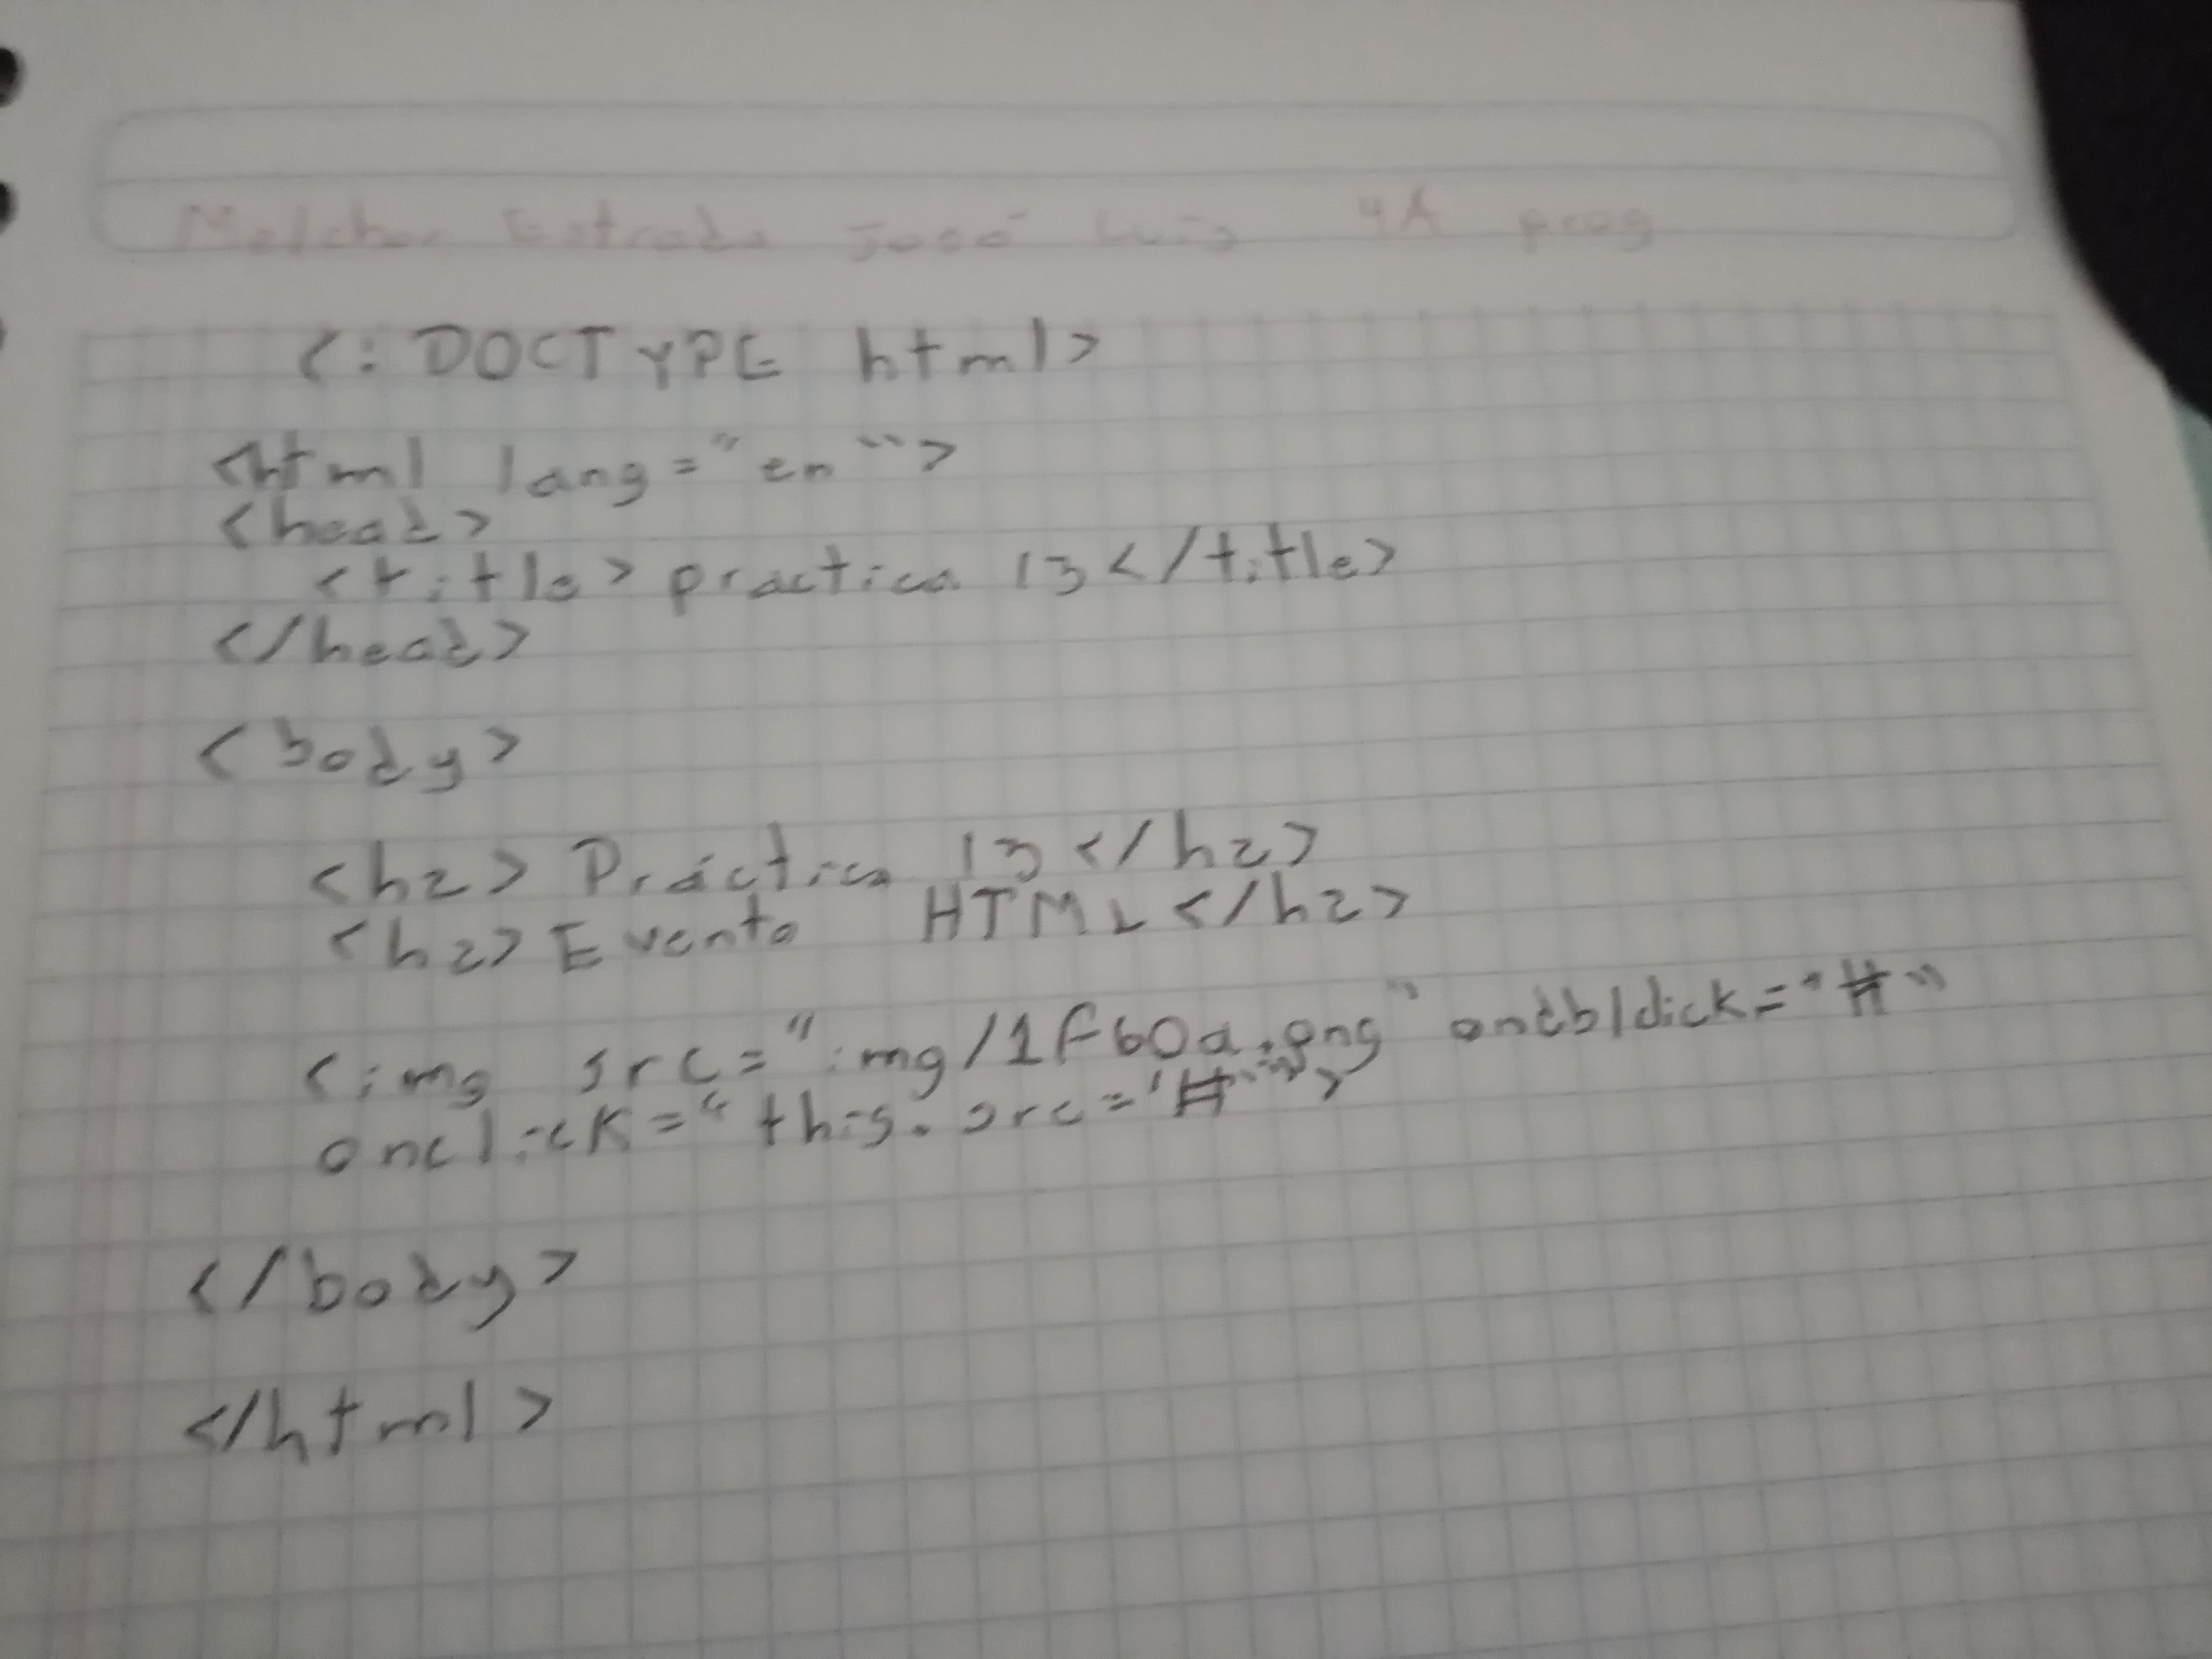 Melchor Estrada José Luis 4A prog
<!DOCTYPE html>
<html lang="en">
<head>
<title>practica 13</title>
</head>
<body>
<h2>Práctica 13</h2>
<h2>Evento HTML</h2>
<img src="img/1f60a.png" ondblclick="#"
onclick="this.src='#'">
</body>
</html>